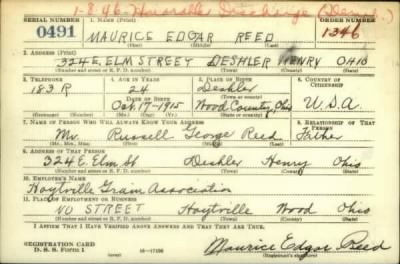 1-8-46-Honorable Discharge (Demob.)
SERIAL NUMBER 1. NAME (Print) ORDER NUMBER
0491 MAURICE EDGAR REED 1346
(First) (Middle) (Last)
2. ADDRESS (Print)
324 E. ELM STREET DESHLER HENRY OHIO
(Number and street or R. F. D. number) (Town) (County) (State)
3. TELEPHONE 4. AGE IN YEARS 5. PLACE OF BIRTH 6. COUNTRY OF CITIZENSHIP
183 R 24 Deshler
DATE OF BIRTH (Town or county)
Oct 17-1915 Wood County, Ohio U.S.A.
(Exchange) (Number) (Mo.) (Day) (Yr.) (State or country)
7. NAME OF PERSON WHO WILL ALWAYS KNOW YOUR ADDRESS 8. RELATIONSHIP OF THAT PERSON
Mr. Russell George Reed Father
(Mr., Mrs., Miss) (First) (Middle) (Last)
9. ADDRESS OF THAT PERSON
324 E. Elm St Deshler Henry Ohio
(Number and street or R. F. D. number) (Town) (County) (State)
10. EMPLOYER'S NAME
Hoytville Grain Association
11. PLACE OF EMPLOYMENT OR BUSINESS
NO STREET Hoytville Wood Ohio
(Number and street or R. F. D. number) (Town) (County) (State)
I AFFIRM THAT I HAVE VERIFIED ABOVE ANSWERS AND THAT THEY ARE TRUE.
REGISTRATION CARD
D. S. S. Form 1 Maurice Edgar Reed
(Registrant's signature)